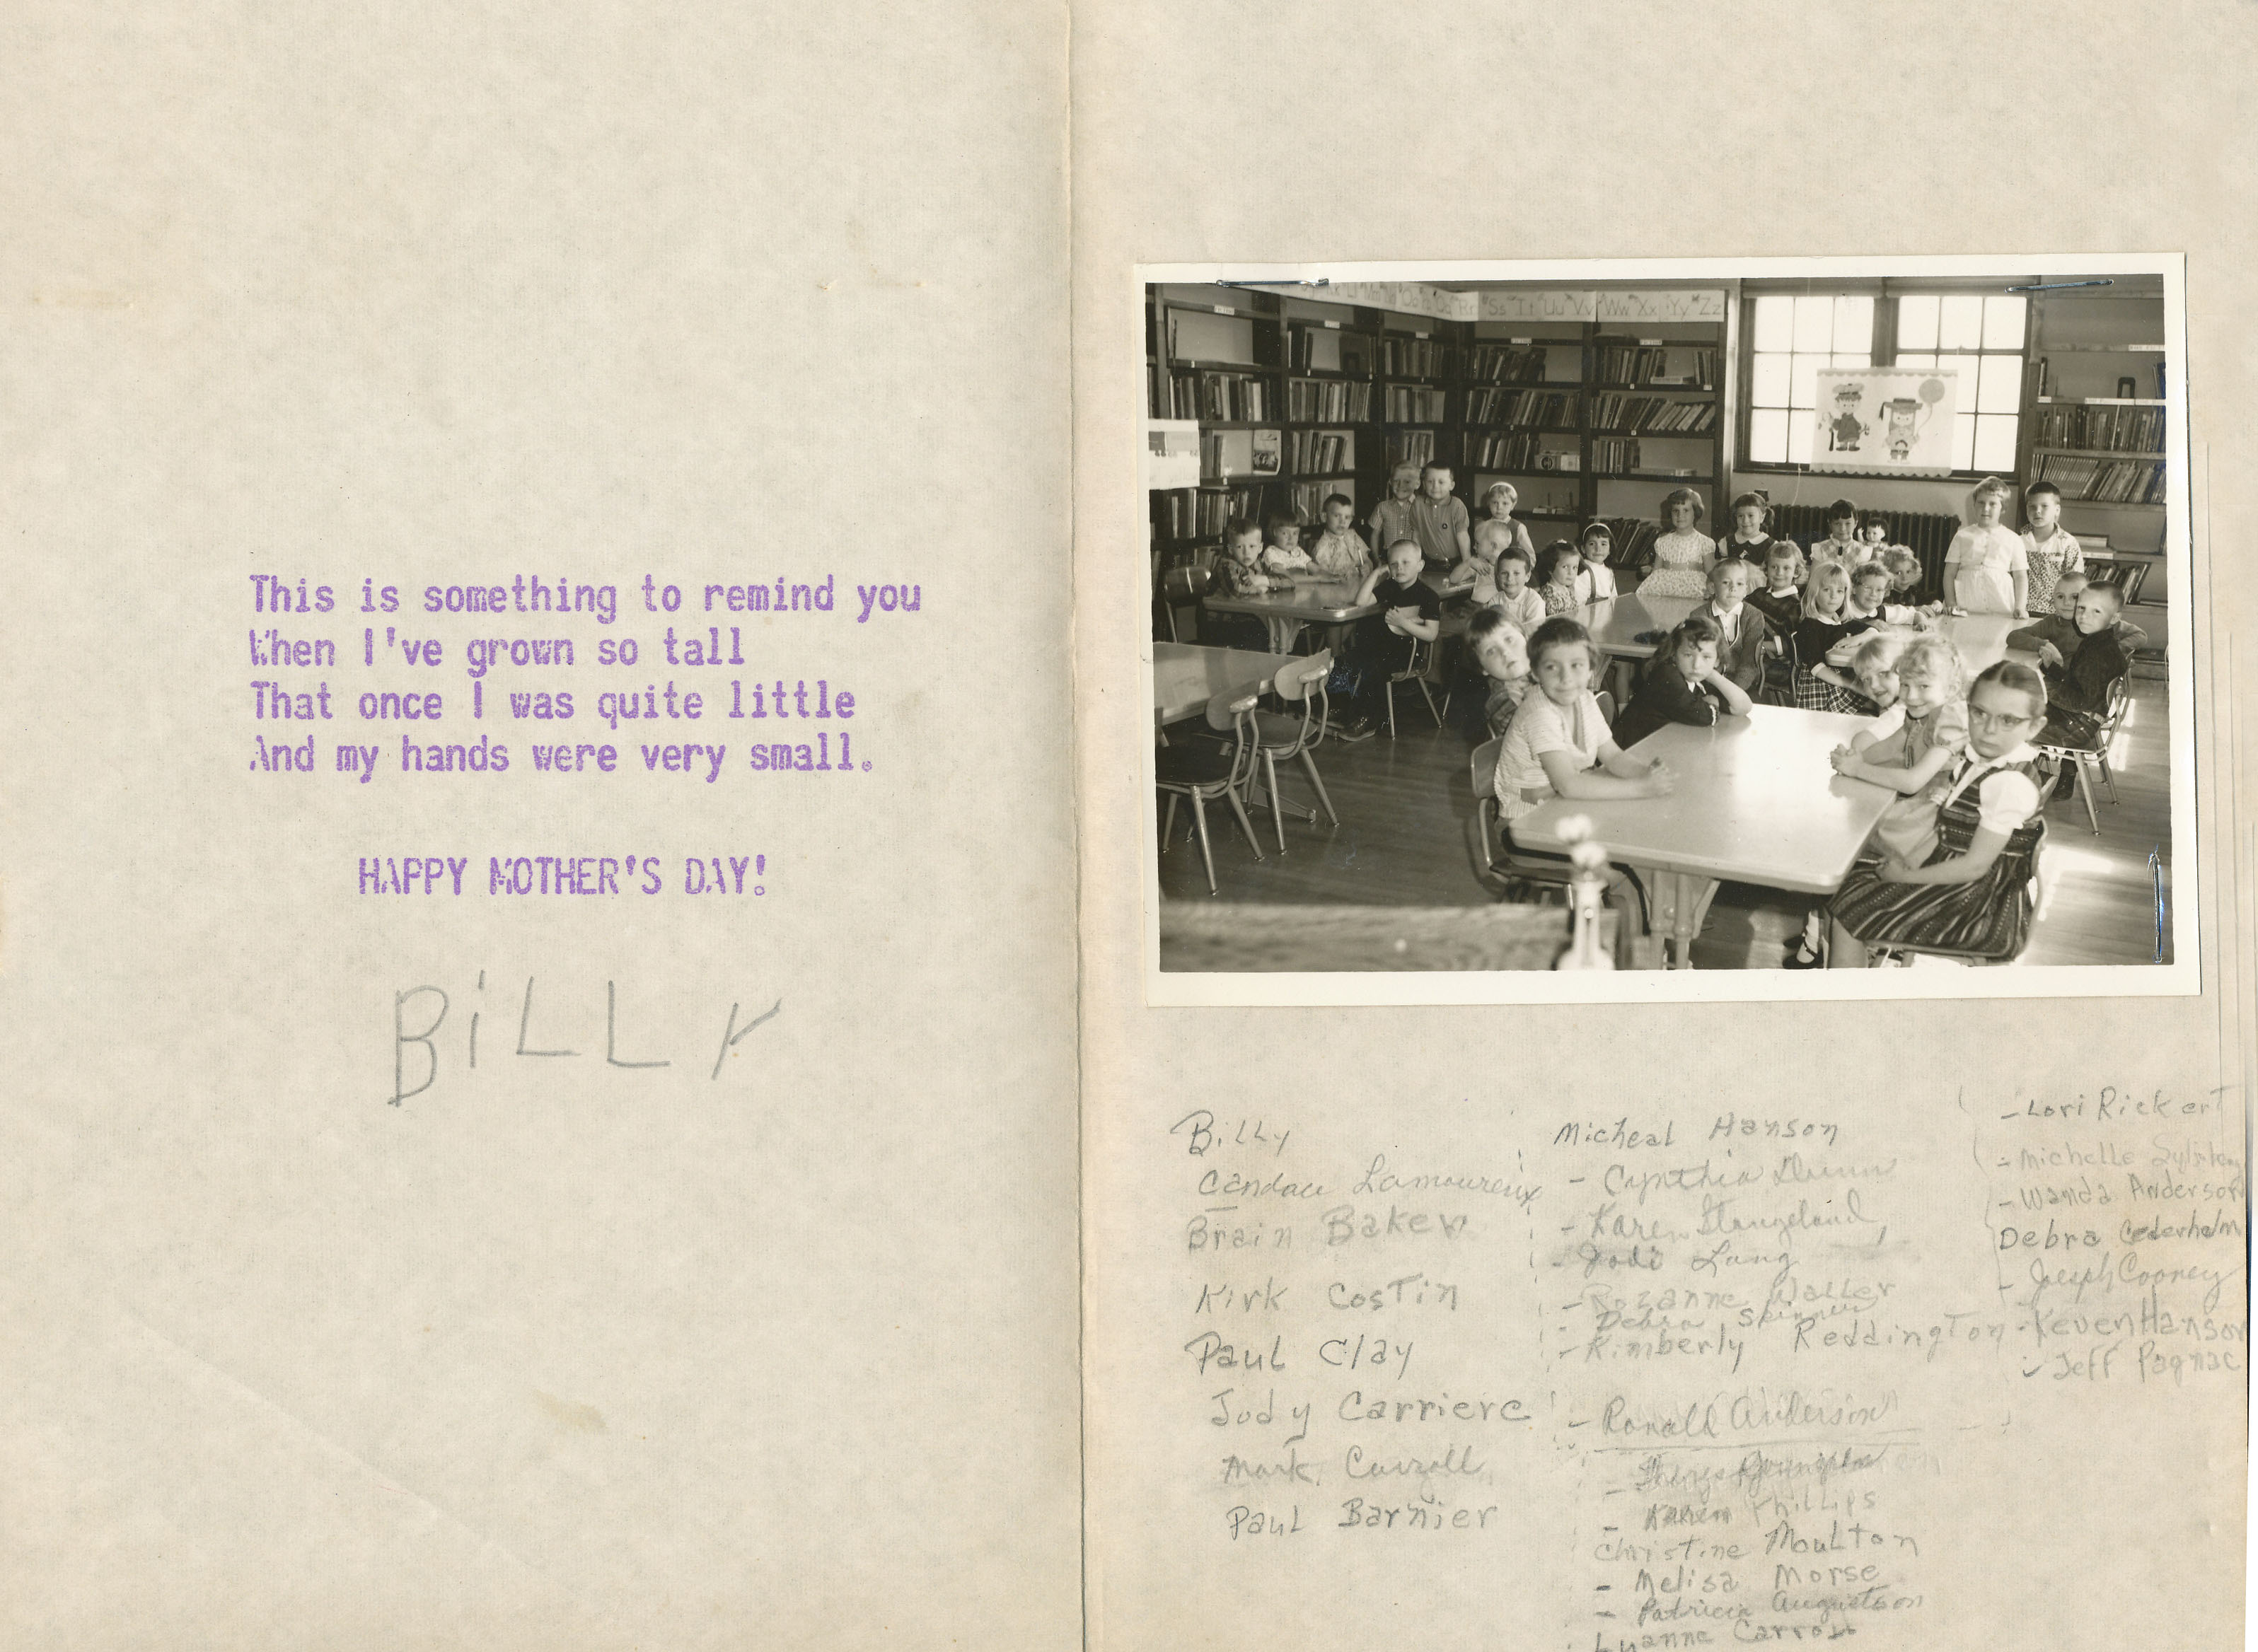 This is something to remind you
When I've grown so tall
That once I was quite little
And my hands were very small.
HAPPY MOTHER'S DAY!
BiLLY
Ss Tt Uu Vv Ww Xx Yy Zz
Billy
Candace Lamoureux
Brain Baker
Kirk Costin
Paul Clay
Jody Carriere
Mark Carroll
Paul Barnier
Micheal Hanson
- Cynthia Dunn
- Karen Stangeland,
- Jodi Lang
- Rozanne Waller
- Debra Skinner
- Kimberly Reddington
- Ronald Anderson
- Karen Phillips
Christine Moulton
- Melisa Morse
- Patricia Augustson
Luanne Carroll
- Lori Rickert
- Michelle
- Wanda Anderson
Debra Cederholm
- Joesph Cooney
- Keven Hanson
- Jeff Pagnac